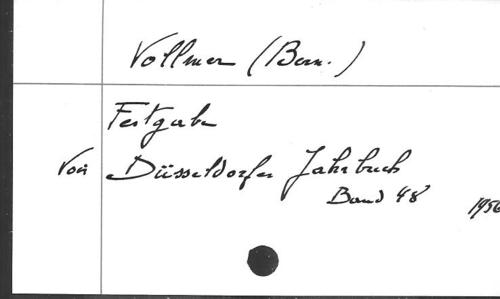 Vollmer (Bern.)
Festgabe
Von Düsseldorfer Jahrbuch
Band 48 1956